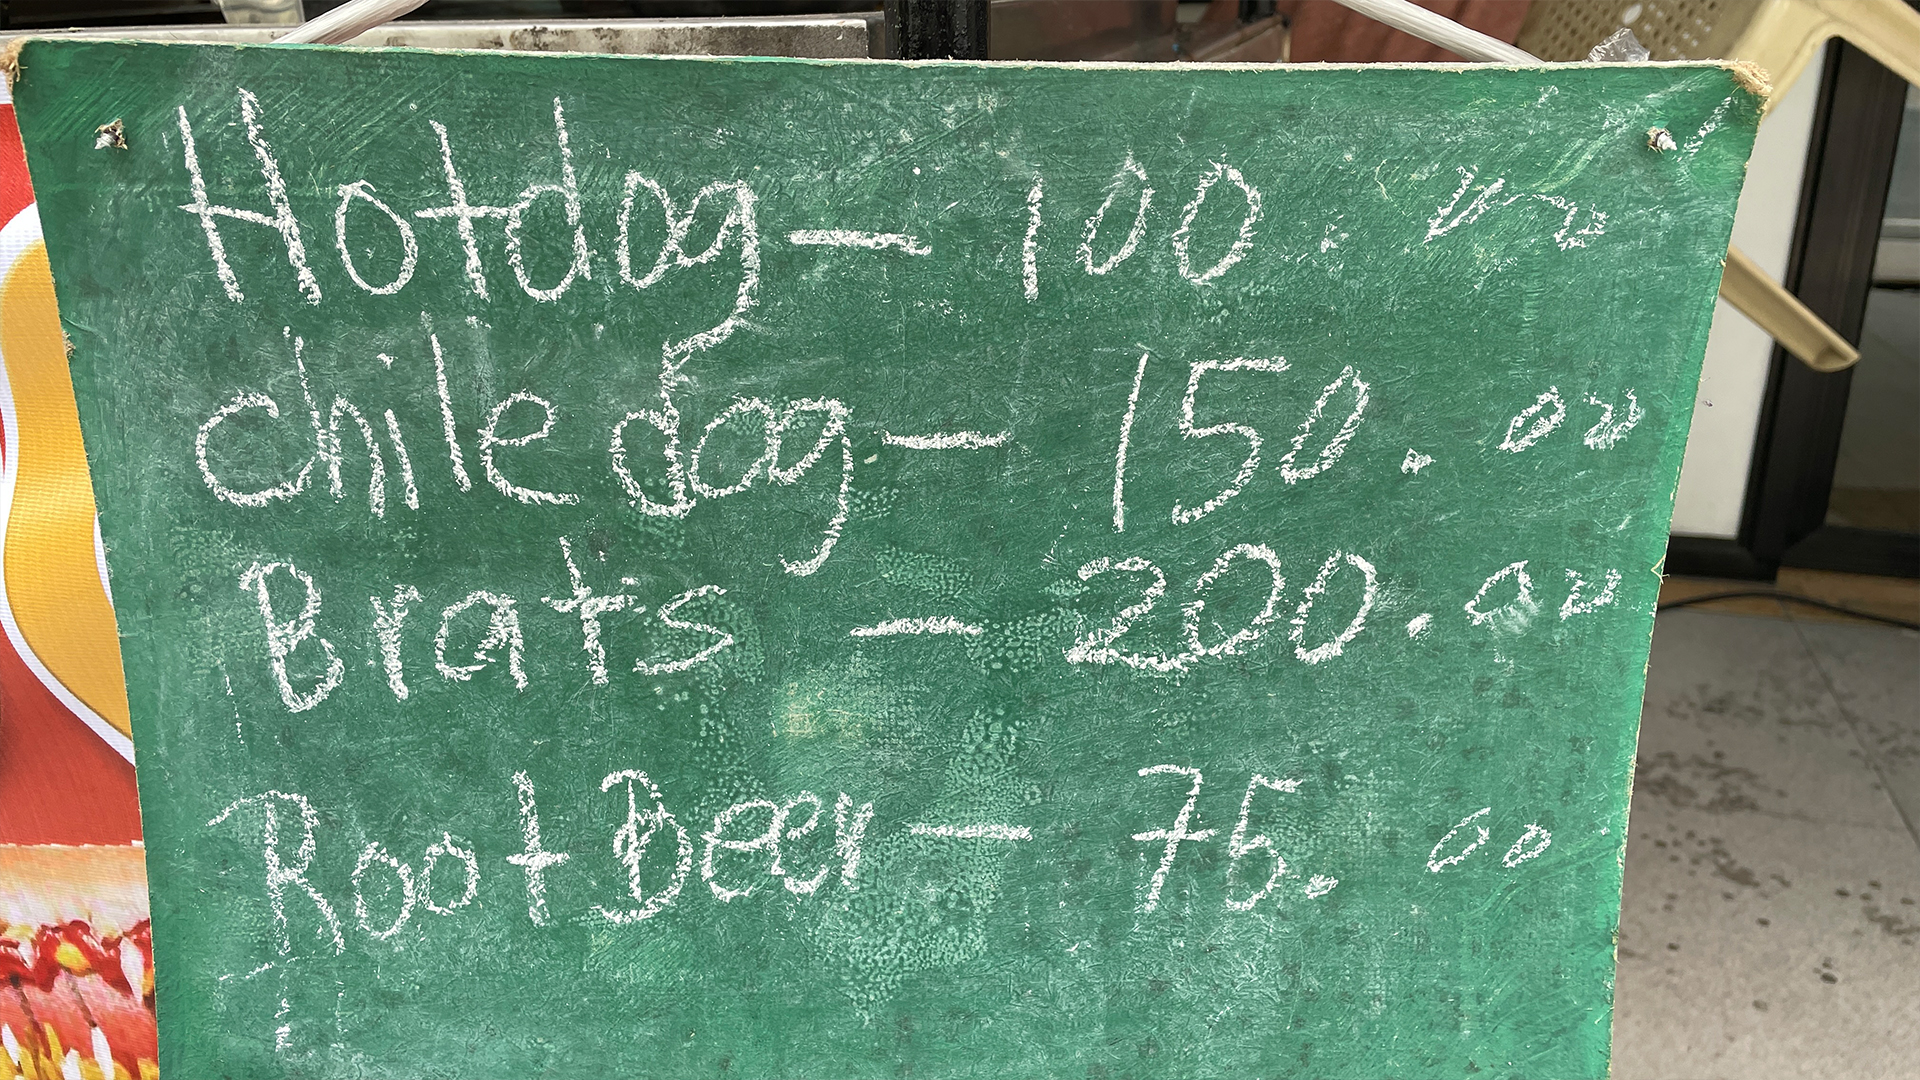 Hotdog — 100. 00
chile dog — 150. 00
Brats — 200. 00
Root Beer — 75. 00